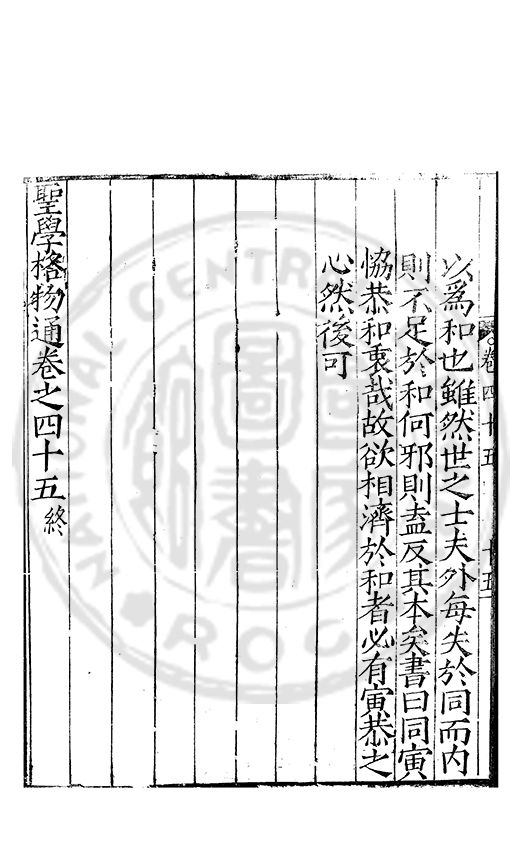 卷四十五 十五
以爲和也雖然世之士夫外每失於同而內
則不足於和何邪則盍反其本矣書曰同寅
恊恭和衷哉故欲相濟於和者必有寅恭之
心然後可
聖學格物通卷之四十五終
NATIONAL CENTRAL
R.O.C.
圖書